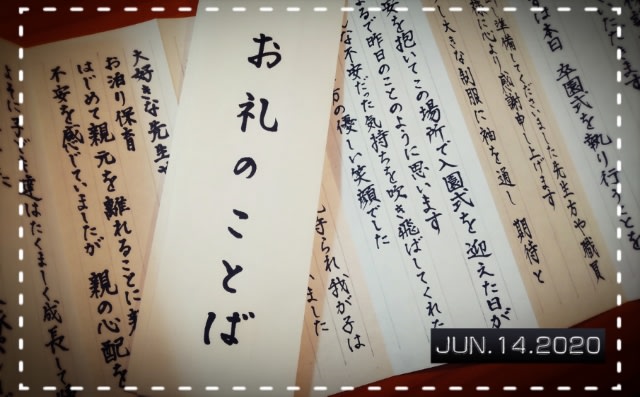 お礼のことば
いただ
ずは本日 卒園式を執り行うことを
準備してくださいました先生方や職員
様に心より感謝申し上げます
し大きな制服に袖を通し 期待と
安を抱いてこの場所で入園式を迎えた日が
るで昨日のことのように思います
な不安だった気持ちを吹き飛ばしてくれた
方の優しい笑顔でした
守られ、我が子は
ました
大好きな先生や
お泊り保育
はじめて親元を離れることに
不安を感じていましたが 親の心配を
よそに子ども達はたくましく成長して
JUN.14.2020